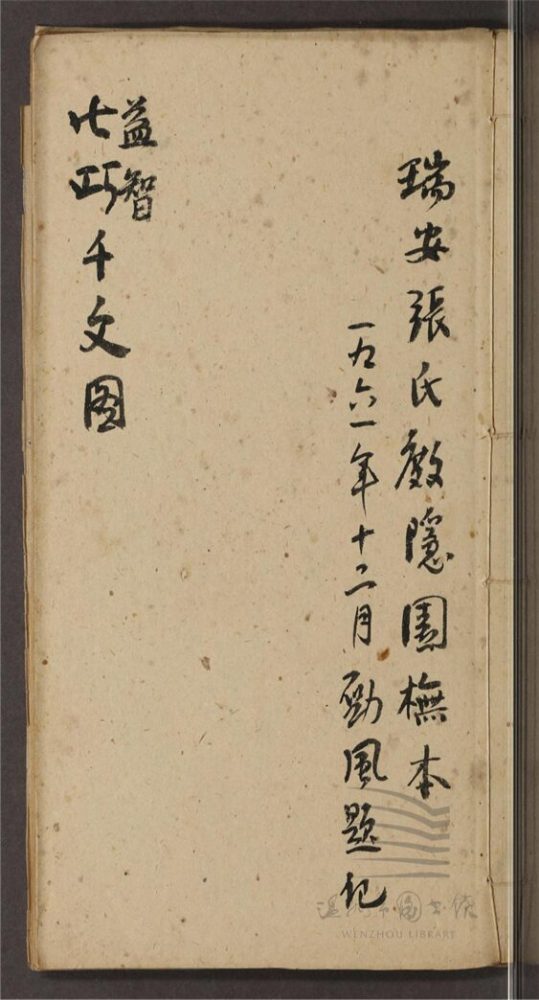 瑞安張氏隱園橅本
一九六一年十二月勁風題記
益智
七巧千文圖
温州市圖書館
WENZHOU LIBRARY